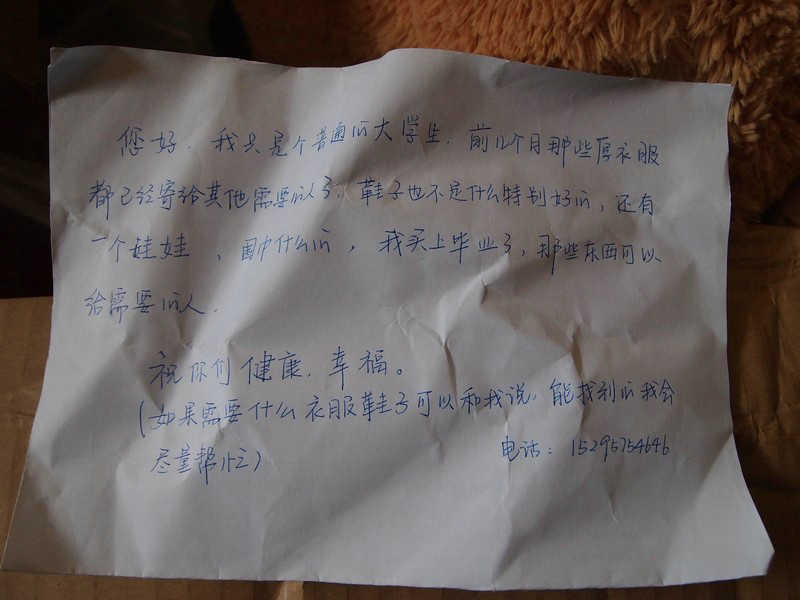 您好。我只是个普通的大学生，前几个月那些厚衣服
都已经寄给其他需要的人了。鞋子也不是什么特别好的，还有
一个娃娃，围巾什么的，我买上毕业了，那些东西可以
给需要的人。
祝你们健康、幸福。
(如果需要什么衣服鞋子可以和我说，能找到的我会
尽量帮忙)
电话：15295754646